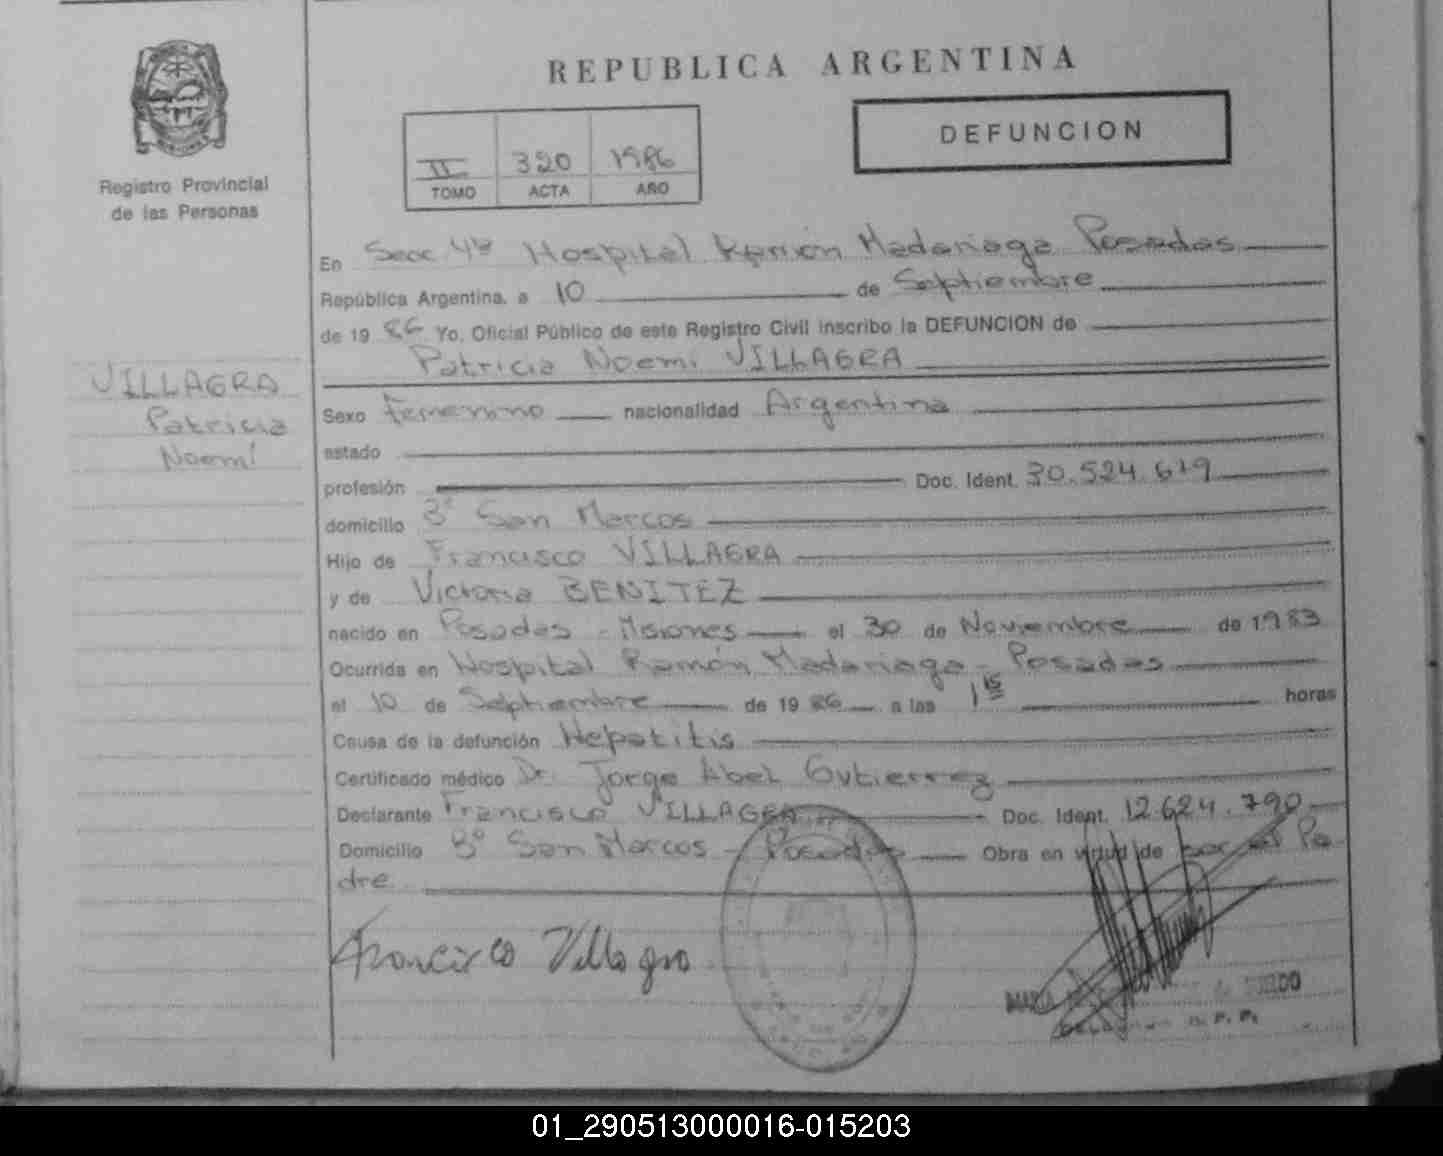 REPUBLICA ARGENTINA
DEFUNCION
II 320 1986
TOMO ACTA AÑO
Registro Provincial
de las Personas
En Secc. 4ta Hospital Ramón Madariaga Posadas
República Argentina, a 10 de Septiembre
de 1986 Yo, Oficial Público de este Registro Civil inscribo la DEFUNCION de
Patricia Noemí VILLAGRA
VILLAGRA
Patricia
Noemí
Sexo femenino nacionalidad Argentina
estado
profesión Doc. Ident. 30.524.619
domicilio Bº San Marcos
Hijo de Francisco VILLAGRA
y de Victoria BENITEZ
nacido en Posadas - Misiones el 30 de Noviembre de 1983
Ocurrida en Hospital Ramón Madariaga - Posadas
el 10 de Septiembre de 1986 a las 1 15 horas
Causa de la defunción Hepatitis
Certificado médico Dr. Jorge Abel Gutierrez
Declarante Francisco VILLAGRA Doc. Ident. 12.624.790
Domicilio Bº San Marcos - Posadas Obra en virtud de ser el Pa
dre
Francisco Villagra
MARIA
01_290513000016-015203